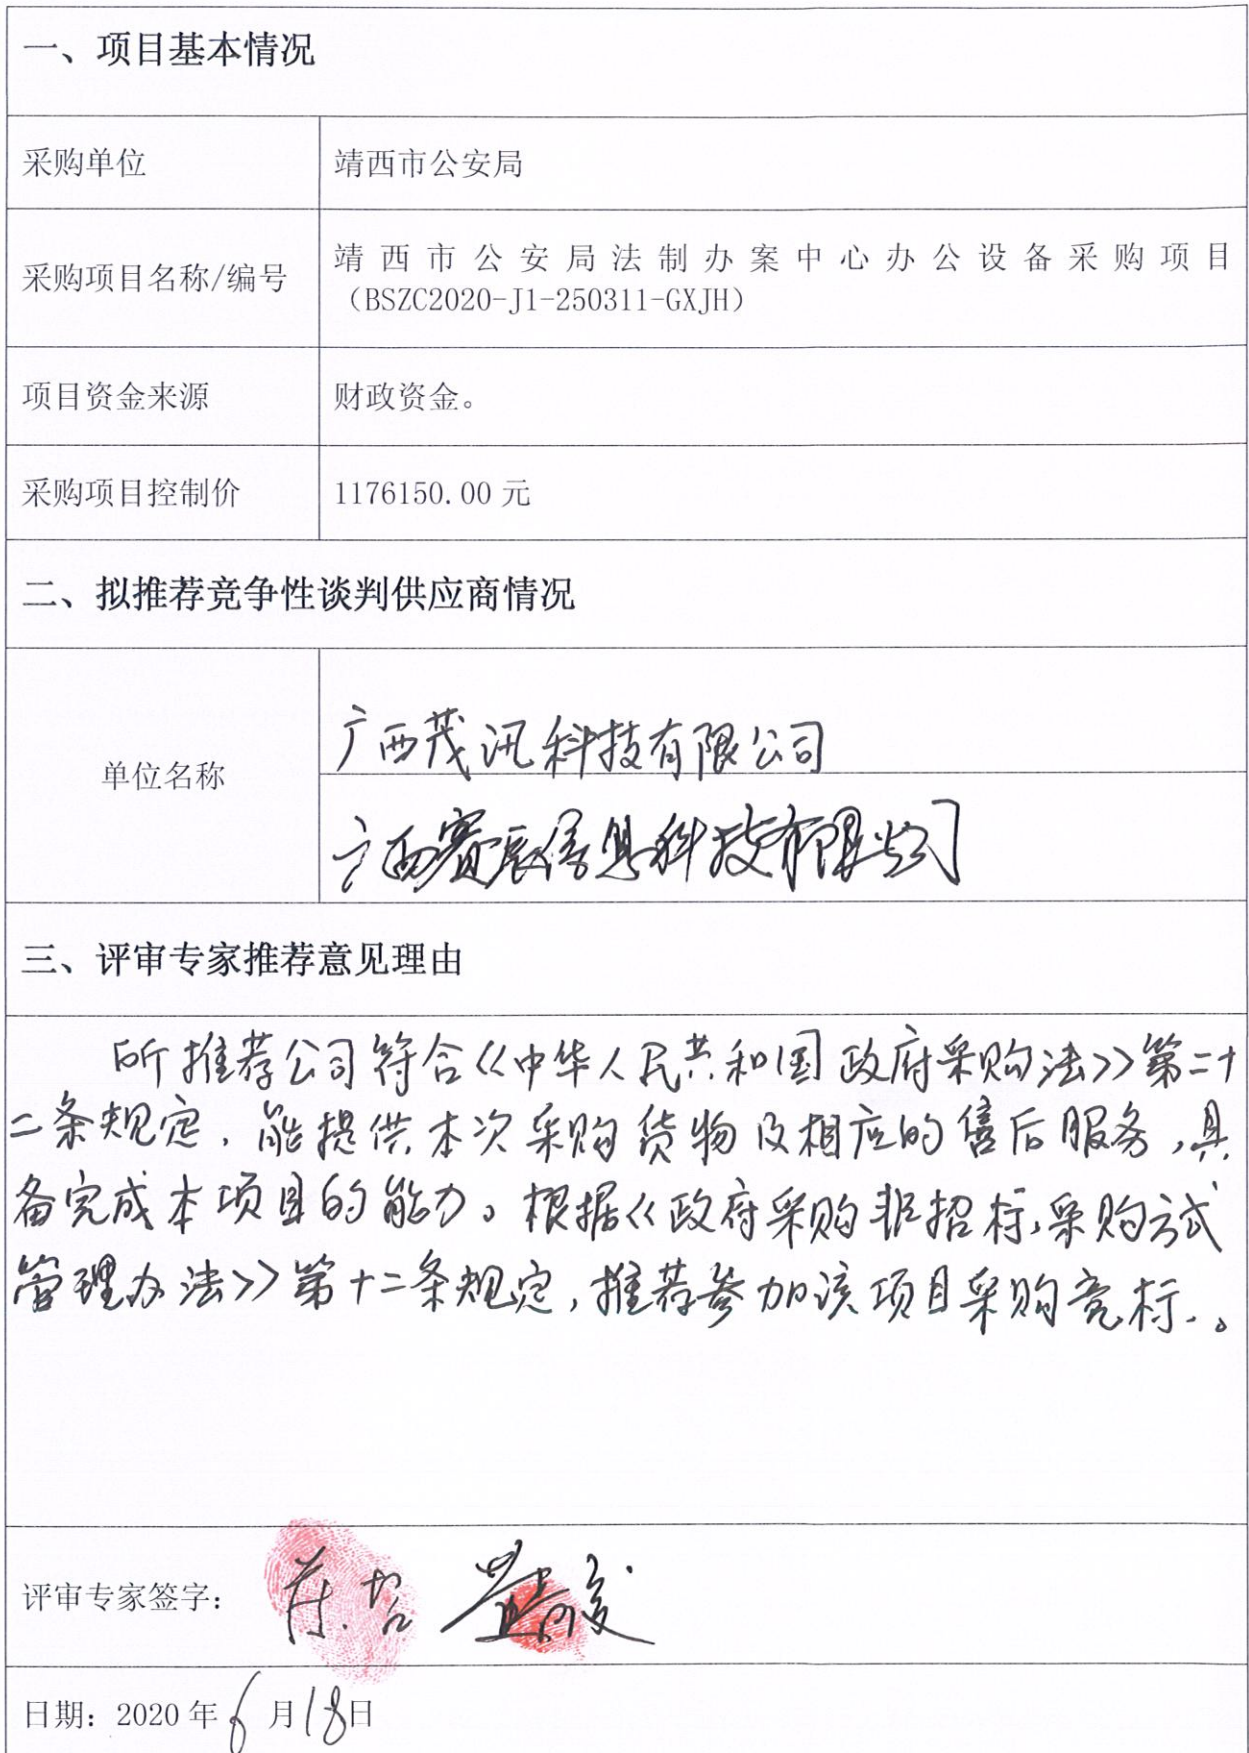 一、项目基本情况
采购单位
靖西市公安局
采购项目名称/编号
靖西市公安局法制办案中心办公设备采购项目
（BSZC2020-J1-250311-GXJH）
项目资金来源
财政资金。
采购项目控制价
1176150.00 元
二、拟推荐竞争性谈判供应商情况
单位名称
广西茂讯科技有限公司
广西赛辰信息科技有限公司
三、评审专家推荐意见理由
所推荐公司符合《中华人民共和国政府采购法》第二十
二条规定，能提供本次采购货物及相应的售后服务，具
备完成本项目的能力。根据《政府采购非招标采购方式
管理办法》第十二条规定，推荐参加该项目采购竞标。
评审专家签字：
日期：2020 年 6 月 18 日